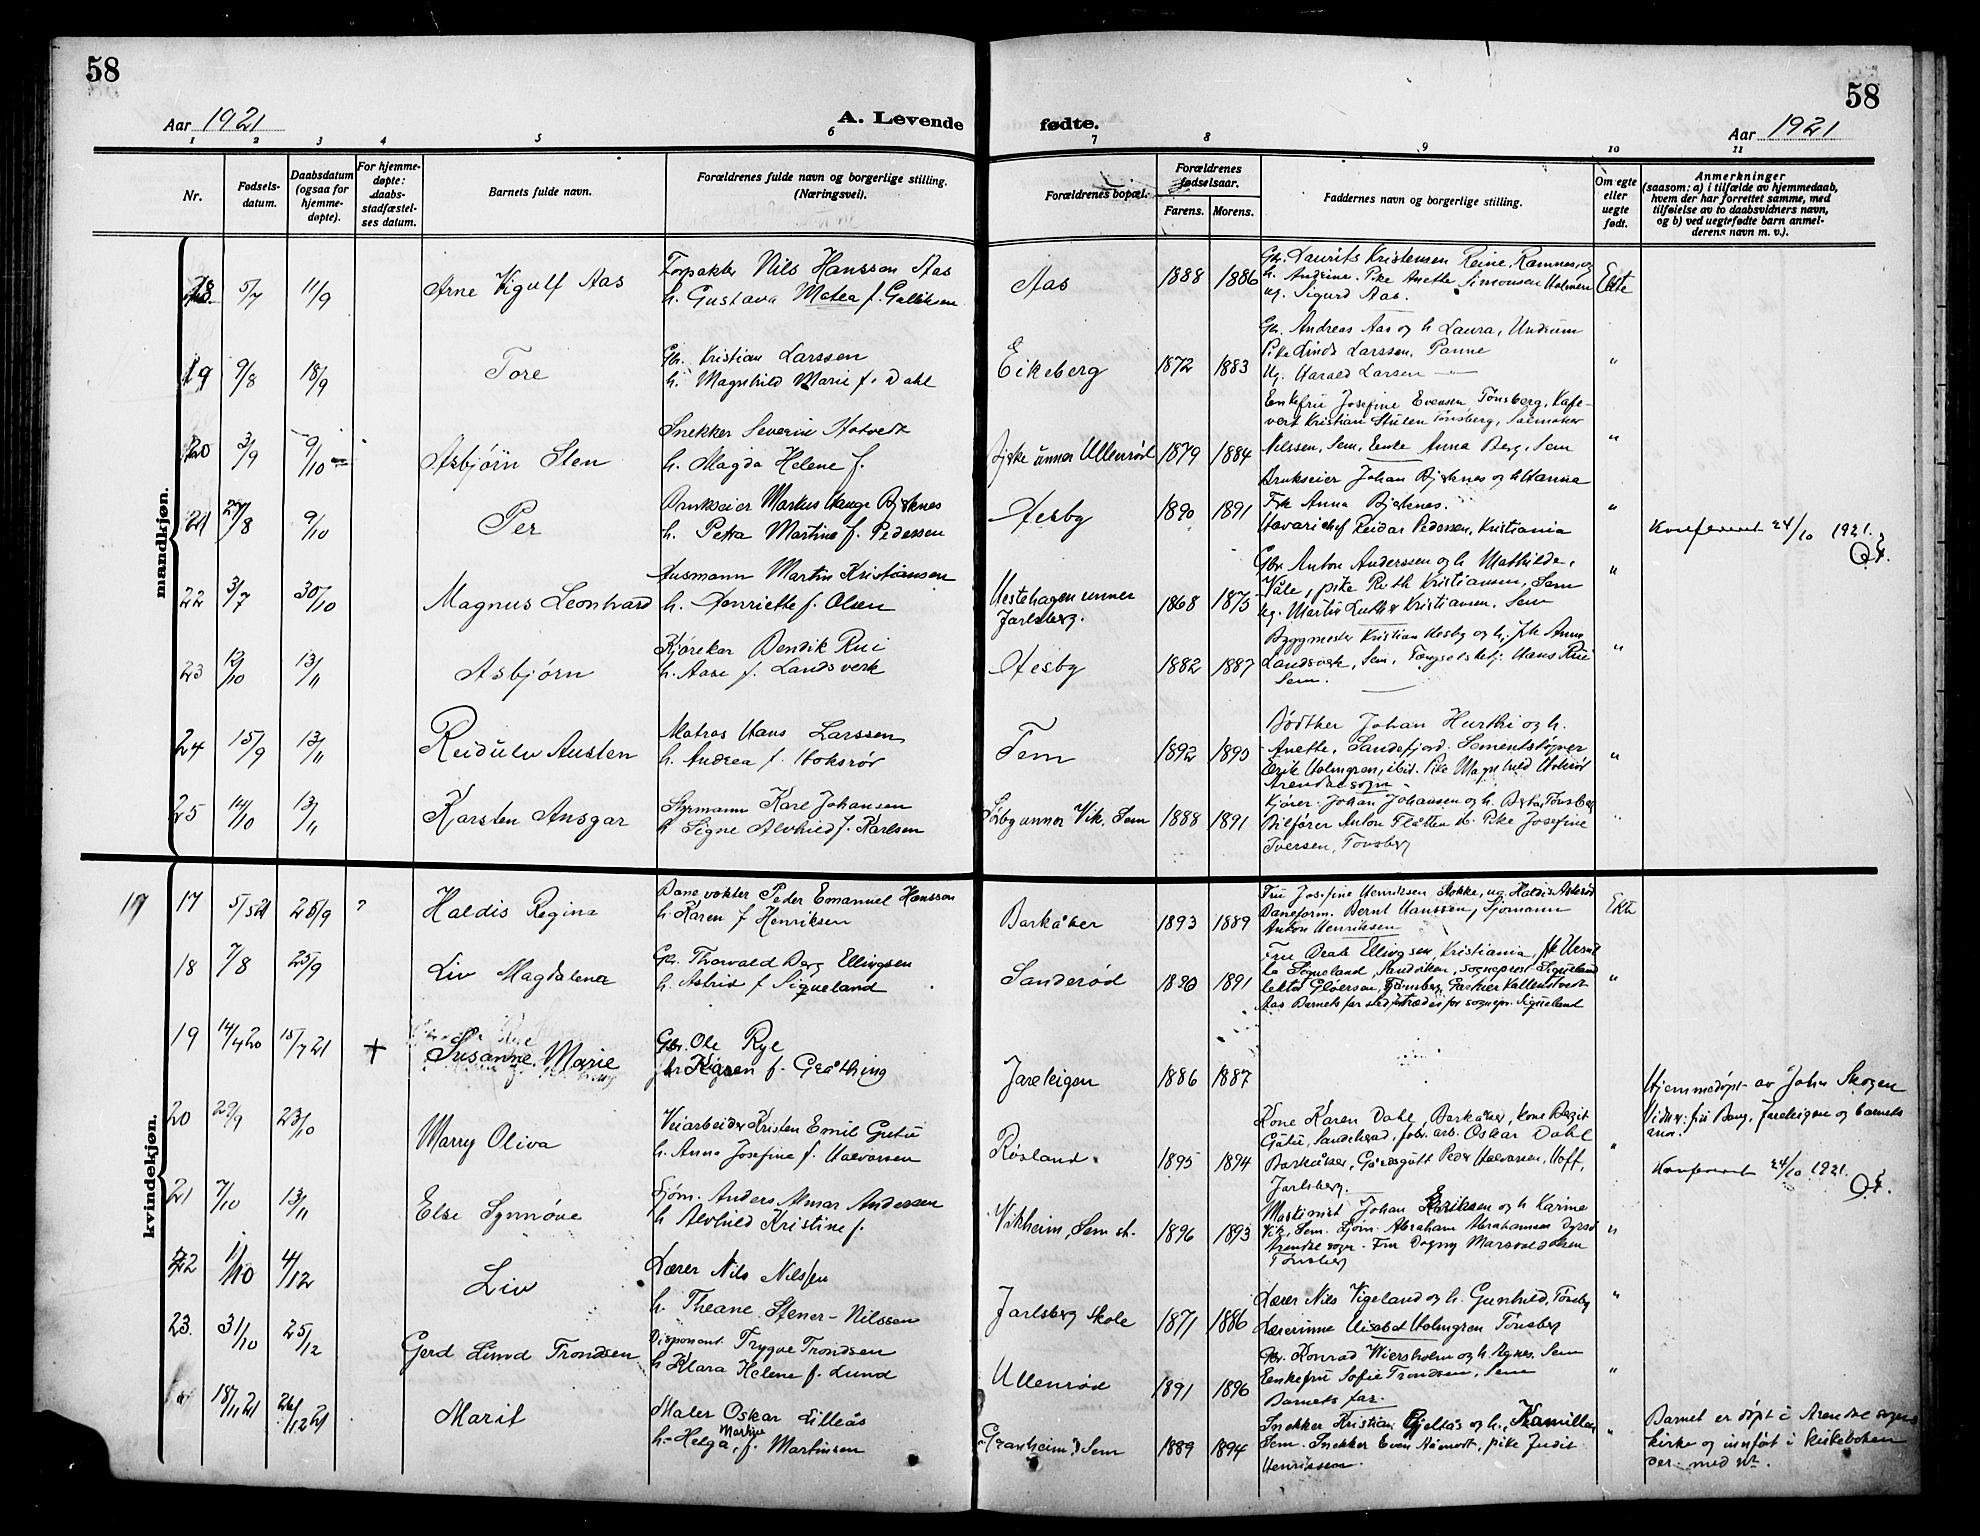 58
58
Aar 1921
A. Levende fødte.
Aar 1921
1 2 3 4 5 6 7 8 9 10 11
Nr.
Fødsels-
datum.
Daabsdatum
(ogsaa for
hjemme-
døpte).
For hjemme-
døpte:
daabs-
stadfæstel-
ses datum.
Barnets fulde navn.
Forældrenes fulde navn og borgerlige stilling.
(Næringsvei).
Forældrenes bopæl.
Forældrenes
fødselsaar.
Farens. Morens.
Faddernes navn og borgerlige stilling.
Om egte
eller
uegte
født.
Anmerkninger
(saasom: a) i tilfælde av hjemmedaab,
hvem der har forrettet samme, med
tilføielse av to daabsvidners navn,
og b) ved uegtefødte barn anmel-
derens navn m. v.).
mandkjøn.
18 5/7 11/9 Arne Vigulf Aas
Forpakter Nils Hansson Aas
h. Gustava Matea f. Gulliksen
Aas 1888 1886
Gbr. Laurits Kristensen Reine, Ramnes, og
h. Andrine. Pike Anette Simonsen Holmen
ug. Sigurd Aas.
Ekte
19 9/8 18/9 Tore
Gbr. Kristian Larssen
h. Magnhild Marie f. Dahl
Eikeberg 1872 1883
Gbr. Andreas Aas og h Laura, Undrum
Pike Linda Larssen, Panne
Ug. Harald Larsen —
"
20 3/9 9/10 Asbjørn Sten
Snekker Severin Hotvedt
h. Magda Helene f.
Bjerke unner Ullenrød 1879 1884
Enkefru Josefine Evensen Tønsberg, Kafe-
vert Kristian Stulen Tønsberg, Salmaker
Nilssen, Sem, Enke Anna Berg, Sem
"
21 27/8 9/10 Per
Bruksseier Markus Hauge Bjerknes
h. Petra Martine f. Pedersen
Hesby 1890 1891
Brukseier Johan Bjerknes og h Hanna
Frk Anna Bjerknes.
Havarichef Reidar Pedersen, Kristiania
"
Konferert 24/10 1921.
22 3/7 30/10 Magnus Leonhard
Husmann Martin Kristiansen
h. Henriette f. Olsen
Hestehagen unner
Jarlsberg.
1868 1875
Gbr. Anton Anderssen og h Mathilde,
Våle, pike Ruth Kristiansen, Sem
ug. Martin Luther Kristiansen. Sem
"
23 12/10 13/11 Asbjørn
Kjørekar Bendik Rui
h. Aase f. Landsverk
Hesby 1882 1887
Byggmester Kristian Hesby og h, frk Anna
Landsverk, Sem, Fængselsbetj. Hans Rui
Sem.
"
24 15/9 13/11 Reidulv Austen
Matros Hans Larssen
h. Andrea f. Hoksrør
Tem 1892 1895
Bødtker Johan Hurthi og h.
Anette, Sandefjord. Sementstøper
Erik Holmgren, ibid. Pike Magnhild
Arendal sogn.
"
25 14/10 13/11 Karsten Ansgar
Styrmann Karl Johansen
h Signe Alvhild f. Karlsen
Sørby unner Vik. Sem 1888 1891
Kjører. Johan Johansen og h. Berta, Tønsberg
Bilfører Anton Flåtten ib. Pike Josefine
Iversen, Tønsberg
"
kvindekjøn.
17
17 5/5 21 25/9 Haldis Regina
Banevokter Peder Emanuel Hansson
h. Karen f Henriksen
Barkåker 1893 1889
Fru Josefine Henriksen, Stokke, ug. Haldis
Baneform. Bernt Hanssen, Sjømann
Anton Henriksen
Ekte
18 7/8 25/9 Liv Magdalena
Gbr. Thorvald Berg Ellingsen
h. Astrid f Siqueland
Sanderød 1890 1891
Fru Beate Ellingsen, Kristiania, frk
Siqueland, Sandviken, sogneprest Siqueland
lektor Gløersen, Tønsberg, Partner
Aas Barnets far sted fortræder for sognepr. Siqueland
"
19 14/4 20 15/7 21 + Susanne Marie
Gbr. Ole Rye
h. Karen f. Gråthing
Jareteigen 1886 1887
Hjemmedøpt av John Skogen
Vidner: fru Bang, Jareteigen og barnets
mor.
20 29/9 23/10 Marry Oliva
Veiarbeider Kristen Emil Gutu
h. Anna Josefine f. Halvorsen
Røsland. 1895 1894
Kone Karen Dahl, Barkåker, kone Bergit
Gutu, Sandeherad, fabr. arb. Oskar Dahl
Barkåker, Gårdsgutt Peder Halvorsen, Hoff,
Jarlsberg.
"
Konferert 24/10 1921.
21 7/10 13/11 Else Synnøve
Sjøm. Anders Almar Andersen
h Alvhild Kristine f.
Vikheim, Sem st. 1896 1893
Maskinist Johan Eriksen og h Karine
Vik, Sem. Sjøm. Abraham Abrahamsen
Arendal sogn. Fru Dagny
Tønsberg
"
22 11/10 4/12 Liv
Lærer Nils Nilssen
h. Theane Stener-Nilssen
Jarlsberg Skole 1871 1886
Lærer Nils Vigeland og h. Gunhild, Tønsbg
Lærerinne Elisabet Holmgren Tønsberg
"
23. 31/10 25/12 Gerd Lund Trondsen
Disponent Trygve Trondsen
h Klara Helene f. Lund
Ullenrød 1891 1896
Gbr. Konrad Wiersholm og h Agnes. Sem
Enkefru Sofie Trondsen, Sem
Barnets far.
"
18/11 21 26/12 21 Marit
Maler Oskar Lilleås
h. Helga Martine f. Martinsen
Granheim, Sem 1889 1894
Snekker Kristian Gjeltås og h., Kamilla,
Sem. Snekker Even Aamodt, pike Judit
Henrikssen.
"
Barnet er døpt i Arendal sogns
kirke og innført i kirkeboken
der med nr.